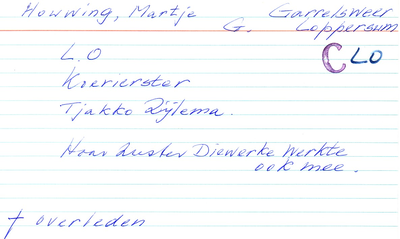 Howwing, Martje
G. Garrelsweer
Loppersum
C LO
L.O
Koerierster
Tjakko Zijlema.
Haar zuster Diewerke werkte
ook mee.
† overleden